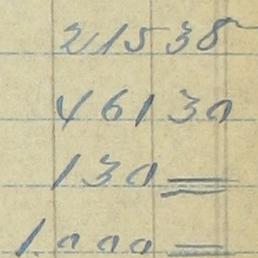 21538
46130
130=
1.000=